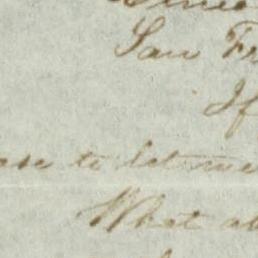 San Fr
If
ase to let me
What ab